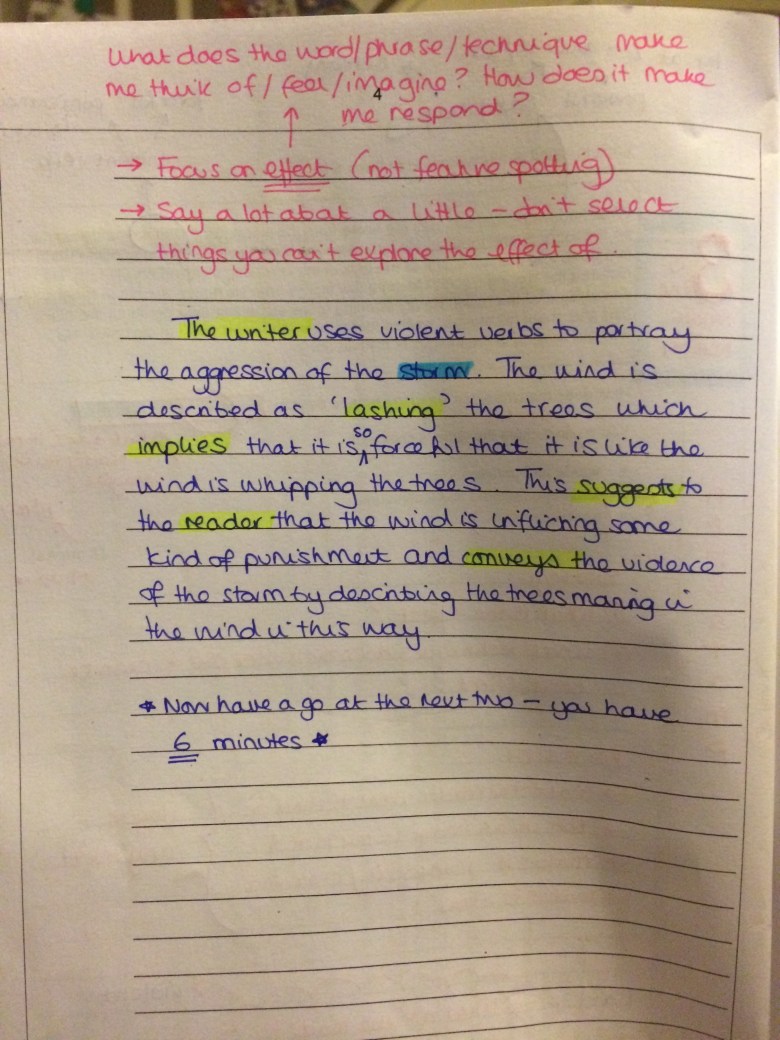 What does the word/phrase/technique make
me think of/feel/imagine? How does it make
4
me respond?
↑
→ Focus on effect (not feature spotting)
→ Say a lot about a little – don't select
things you can't explore the effect of.
The writer uses violent verbs to portray
the aggression of the storm. The wind is
described as 'lashing' the trees which
implies that it is so forceful that it is like the
wind is whipping the trees. This suggests to
the reader that the wind is inflicting some
kind of punishment and conveys the violence
of the storm by describing the trees moving in
the wind in this way.
* Now have a go at the next two – you have
6 minutes *